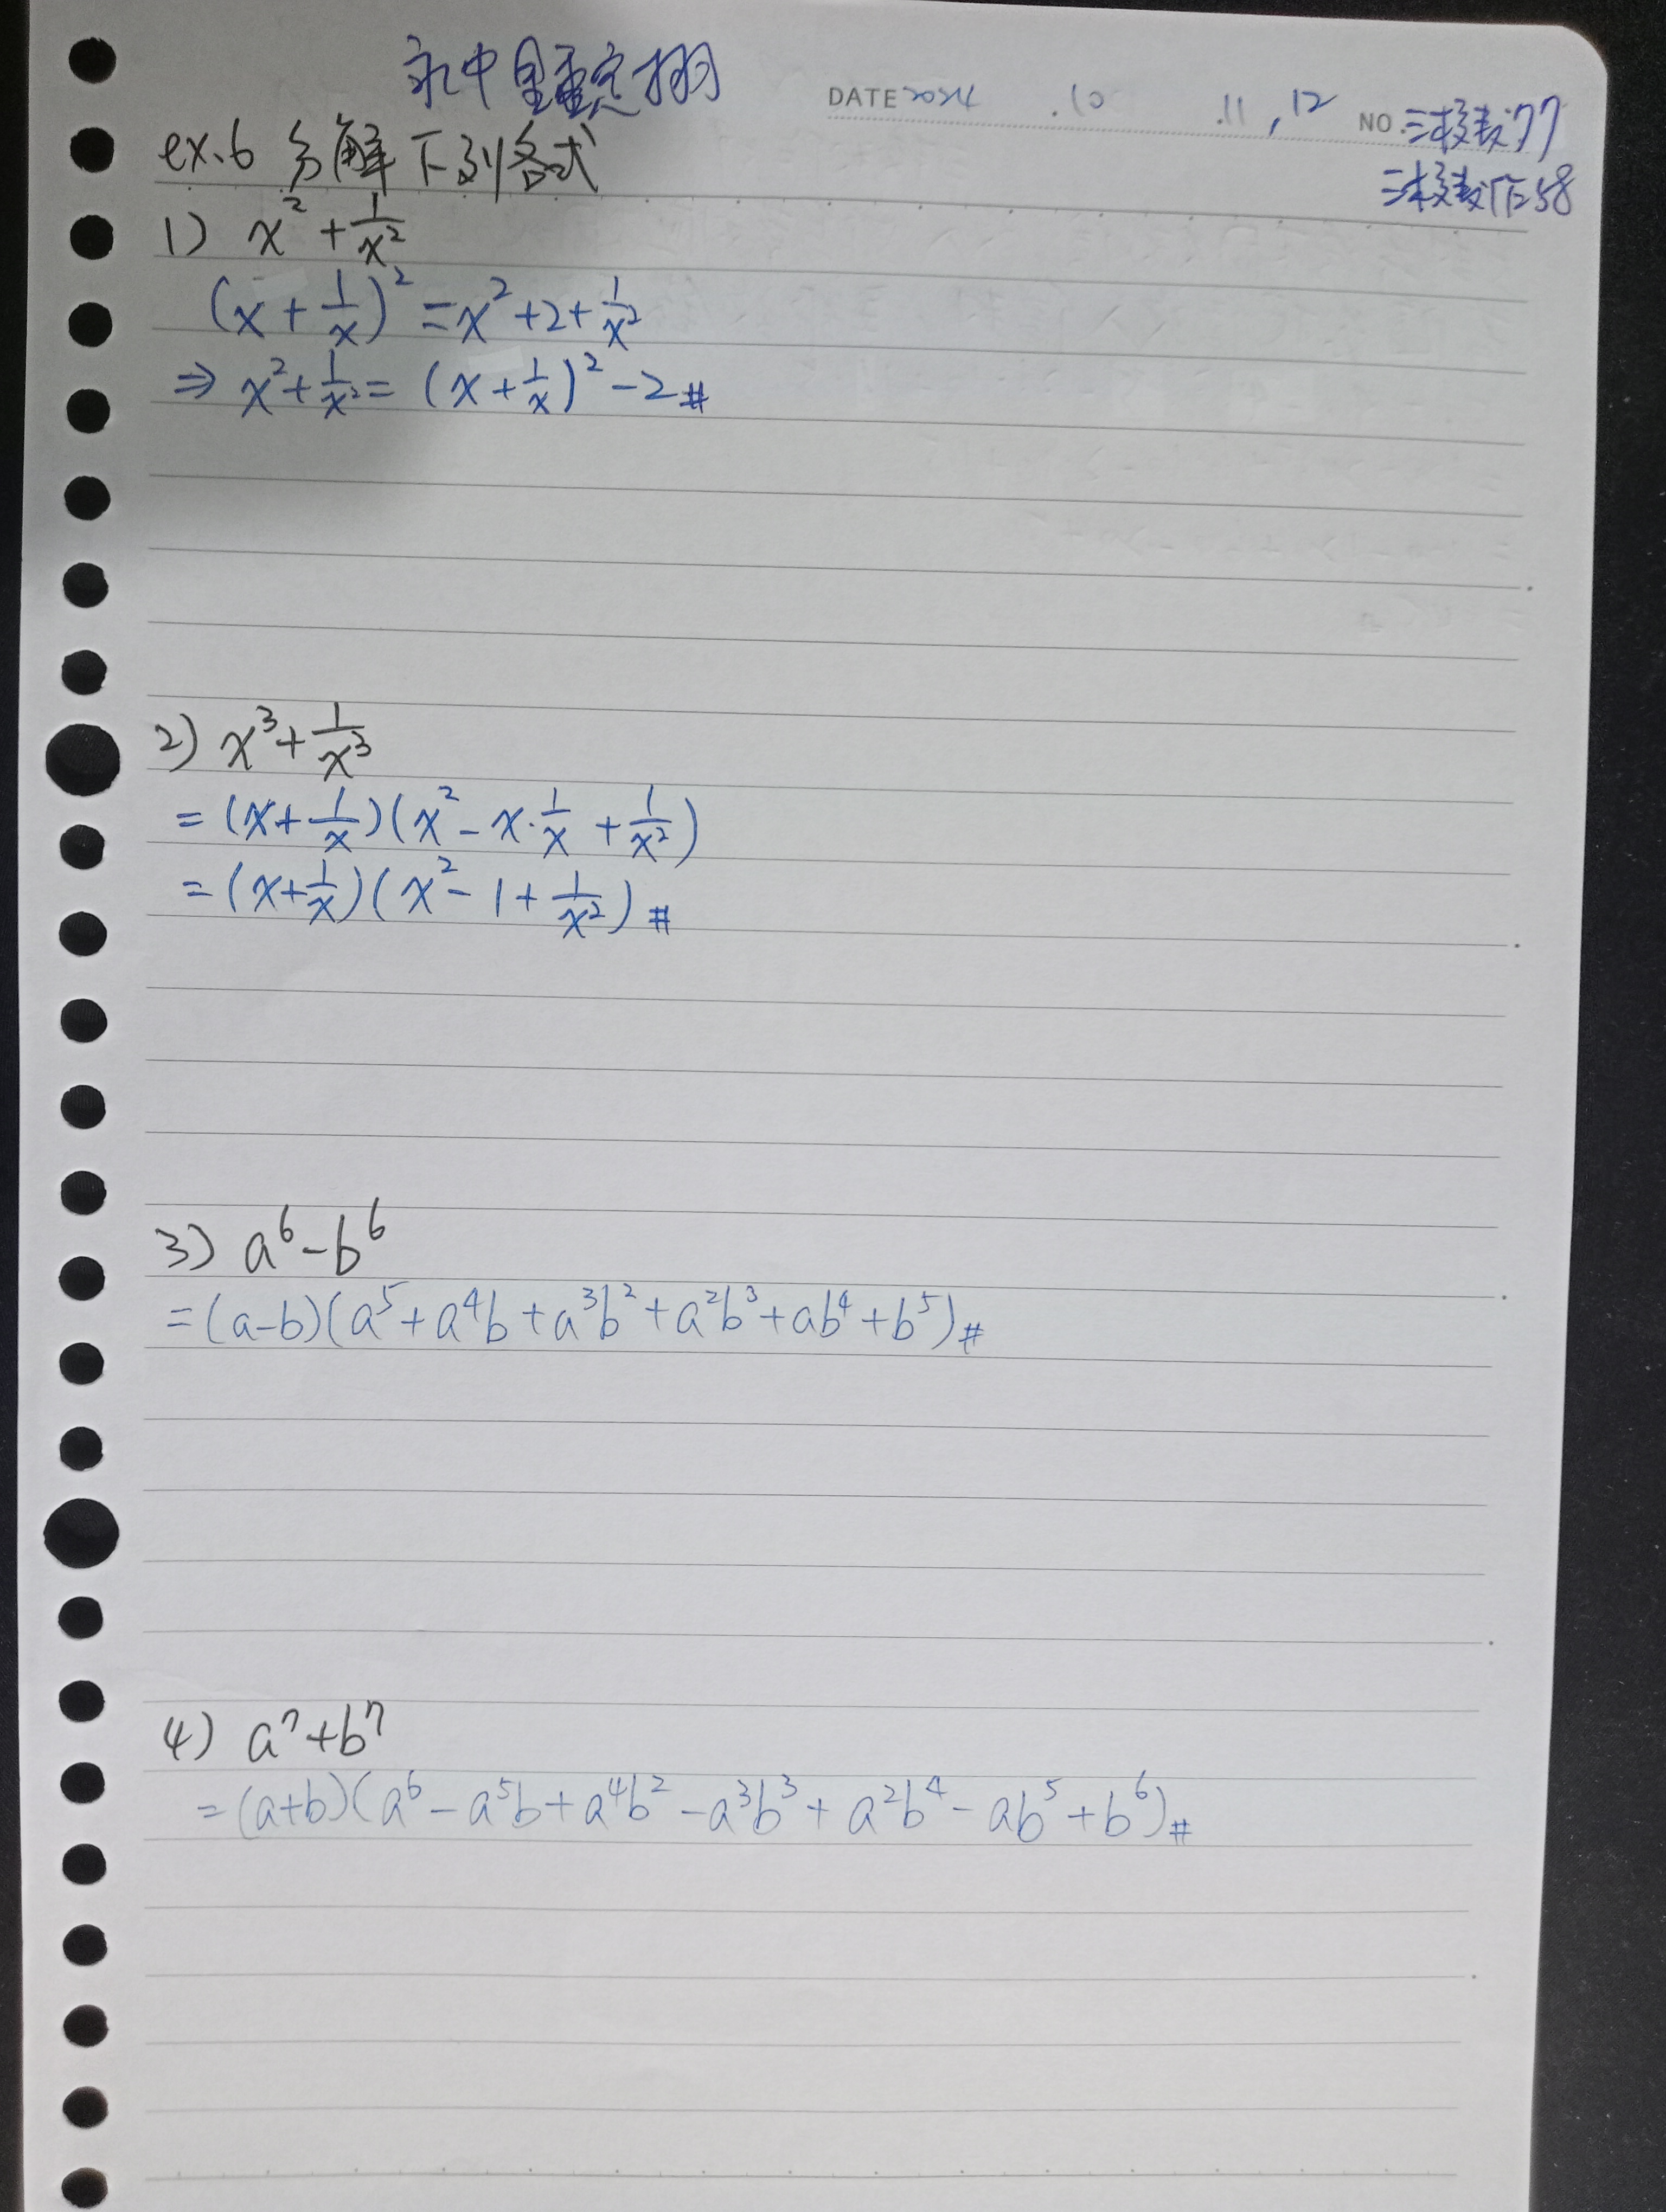 永中 童意翔
DATE 2024 .10 .11,12 NO. 三校教77
三校教作58
ex.6 分解下列各式
1) x² + 1/x²
(x + 1/x)² = x² + 2 + 1/x²
⇒ x² + 1/x² = (x + 1/x)² - 2 #
2) x³ + 1/x³
= (x + 1/x)(x² - x·1/x + 1/x²)
= (x + 1/x)(x² - 1 + 1/x²) #
3) a⁶ - b⁶
= (a-b)(a⁵ + a⁴b + a³b² + a²b³ + ab⁴ + b⁵) #
4) a⁷ + b⁷
= (a+b)(a⁶ - a⁵b + a⁴b² - a³b³ + a²b⁴ - ab⁵ + b⁶) #